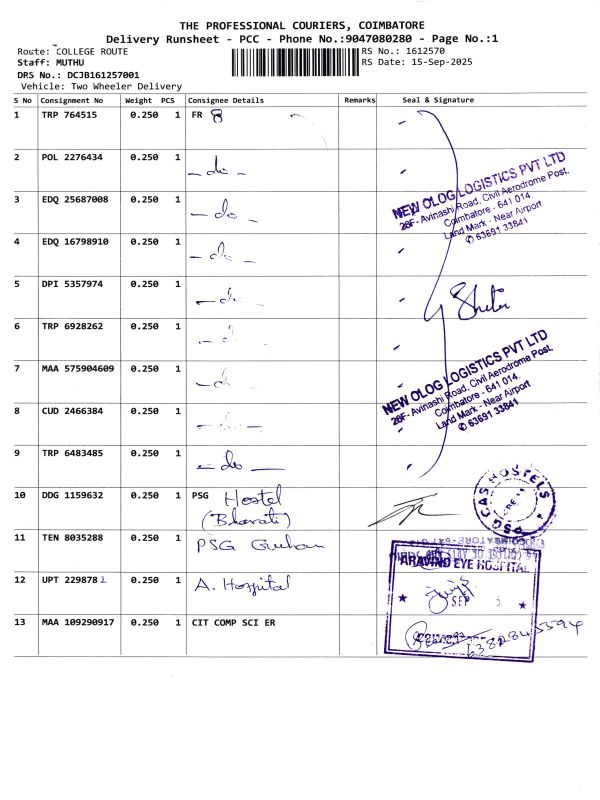 THE PROFESSIONAL COURIERS, COIMBATORE
Delivery Runsheet - PCC - Phone No.:9047080280 - Page No.:1
Route: COLLEGE ROUTE
RS No.: 1612570
Staff: MUTHU
RS Date: 15-Sep-2025
DRS No.: DCJB161257001
Vehicle: Two Wheeler Delivery
S No Consignment No Weight PCS Consignee Details Remarks Seal & Signature
1 TRP 764515 0.250 1 FR 8
2 POL 2276434 0.250 1 - do -
3 EDQ 25687008 0.250 1 - do -
4 EDQ 16798910 0.250 1 - do -
5 DPI 5357974 0.250 1 - do -
6 TRP 6928262 0.250 1 - do -
7 MAA 575904609 0.250 1 - do -
8 CUD 2466384 0.250 1 - do -
9 TRP 6483485 0.250 1 - do -
10 DDG 1159632 0.250 1 PSG Hostel
(Bharati)
11 TEN 8035288 0.250 1 PSG
12 UPT 2298782 0.250 1 A. Hospital
13 MAA 109290917 0.250 1 CIT COMP SCI ER
NEW OLOG LOGISTICS PVT LTD
26F- Avinashi Road, Civil Aerodrome Post,
Coimbatore - 641 014.
Land Mark - Near Airport
✆ 63691 33841
NEW OLOG LOGISTICS PVT LTD
26F- Avinashi Road, Civil Aerodrome Post,
Coimbatore - 641 014.
Land Mark - Near Airport
✆ 63691 33841
PSG CAS HOSTELS
ARAVIND EYE HOSPITAL
SEP